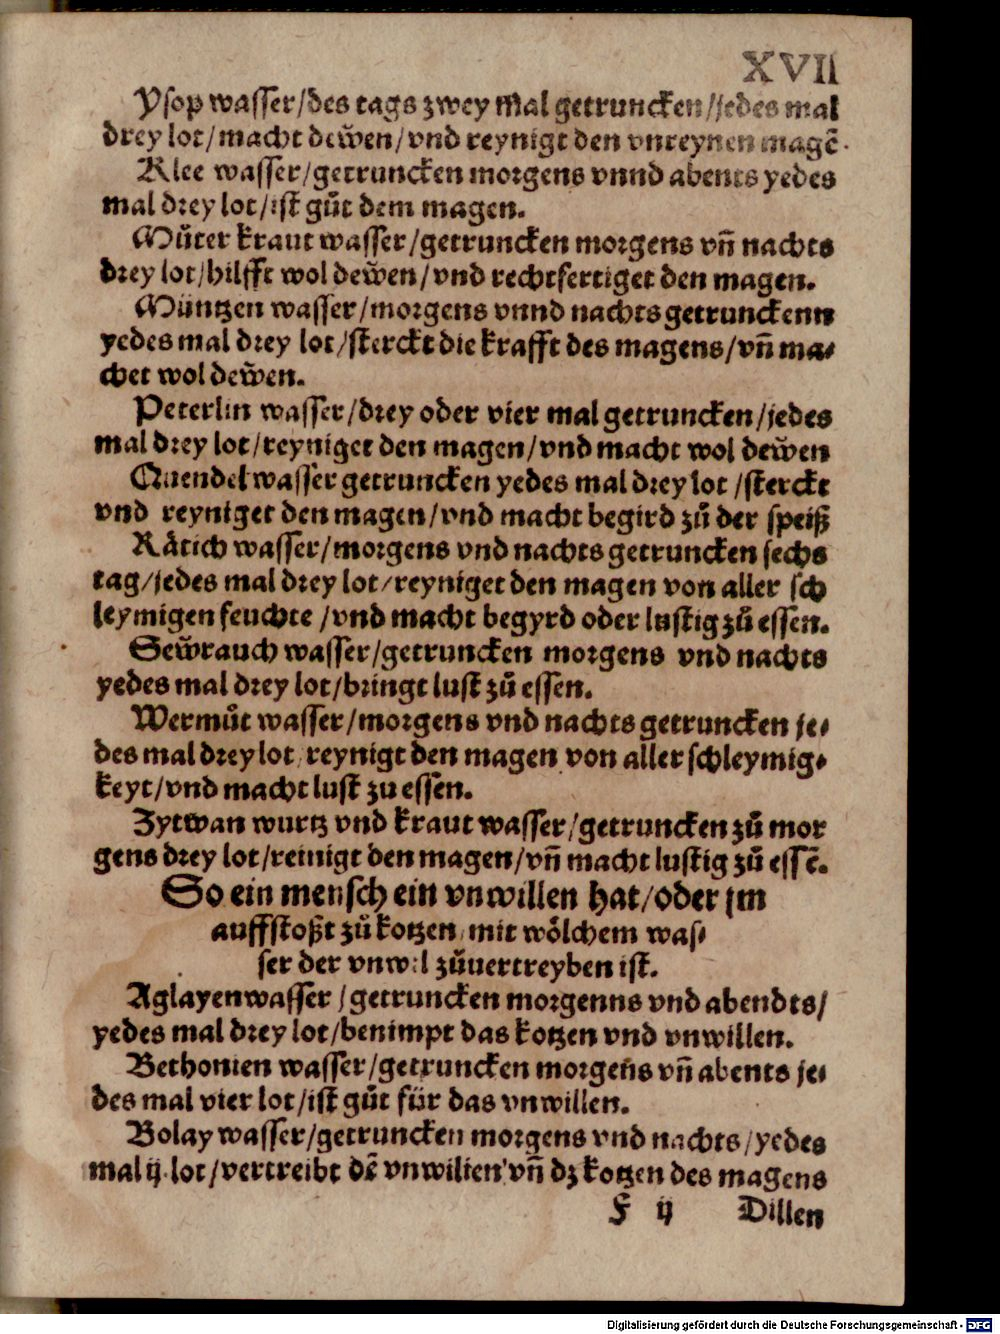 XVII
Ysop wasser/des tags zwey mal getruncken/jedes mal
drey lot/macht dew̆en/vnd reynigt den vnreynen magē.
Klee wasser/getruncken morgens vnnd abents yedes
mal drey lot/ist gůt dem magen.
Můter kraut wasser/getruncken morgens vn̄ nachts
drey lot/hilfft wol dew̆en/vnd rechtfertiget den magen.
Müntzen wasser/morgens vnnd nachts getrunckenn
yedes mal drey lot/sterckt die krafft des magens/vn̄ ma⸗
chet wol dew̆en.
Peterlin wasser/drey oder vier mal getruncken/jedes
mal drey lot/reyniget den magen/vnd macht wol dew̆en
Quendel wasser getruncken yedes mal drey lot/sterckt
vnd reyniget den magen/vnd macht begird zů der speiß
Rätich wasser/morgens vnd nachts getruncken sechs
tag/jedes mal drey lot/reyniget den magen von aller sch
leymigen feuchte/vnd macht begyrd oder lustig zů essen.
Sew̆rauch wasser/getruncken morgens vnd nachts
yedes mal drey lot/bringt lust zů essen.
Wermůt wasser/morgens vnd nachts getruncken je⸗
des mal drey lot/reynigt den magen von aller schleymig⸗
keyt/vnd macht lust zu essen.
Zytwan wurtz vnd kraut wasser/getruncken zů mor
gens drey lot/reinigt den magen/vn̄ macht lustig zů essē.
So ein mensch ein vnwillen hat/oder jm
auffstoßt zů kotzen/mit wölchem was⸗
ser der vnwil zůuertreyben ist.
Aglayenwasser/getruncken morgenns vnd abendts/
yedes mal drey lot/benimpt das kotzen vnd vnwillen.
Bethonien wasser/getruncken morgens vn̄ abents je⸗
des mal vier lot/ist gůt für das vnwillen.
Bolay wasser/getruncken morgens vnd nachts/yedes
mal ij.lot/vertreibt dē vnwillen vn̄ dz kotzen des magens
F ij Dillen
Digitalisierung gefördert durch die Deutsche Forschungsgemeinschaft - DFG